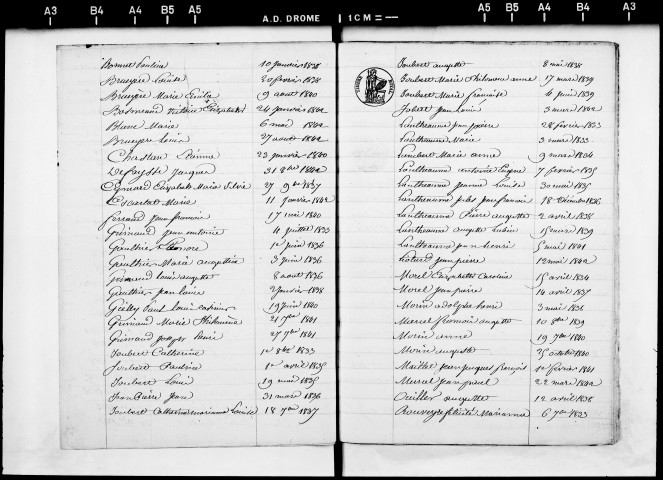 A3 A4 B5 A5 A.D. DROME 1 CM = A5 B4 A4 B4 A3
Pauline 10 janvier 1838
Bruyère 20 février 1838
Bruyère Marie 9 août 1840
24 janvier 1842
Blanc Marie 6 mai 1842
Bruyère Louis 27 août 1842
Chastan 23 janvier 1840
Jacques 31 8bre 1842
Eymard Elisabeth Marie 27 9bre 1837
Marie 11 janvier 1842
Ferrand jean françois 17 mai 1840
Grimaud jean antoine 4 juillet 1833
Gauthier 1er juin 1836
Gauthier Marie augustine 3 juin 1836
Grimaud Louis auguste 8 août 1836
Gauthier jean louis 2 janvier 1838
Gielly Paul Louis 19 juin 1840
Grimaud Marie Philomène 21 7bre 1841
Grimaud joseph henri 27 7bre 1841
Joubert Catherine 1er 8bre 1833
Joubert Pauline 1er avril 1835
Joubert Louis 19 mai 1835
Jean 31 mars 1836
Joubert Catherine marianne Louise 18 7bre 1837
Joubert auguste 8 mai 1838
Joubert Marie Philomène anne 17 mars 1839
Joubert Marie françoise 4 juin 1839
jean louis 3 mars 1842
Lantheaume jean pierre 28 février 1833
Lantheaume Marie 3 mars 1833
Lambert Marie anne 9 mars 1834
Lantheaume antoine Eugène 7 février 1835
Lantheaume jeanne Louise 30 mai 1835
Lantheaume jean françois 18 Décembre 1836
Lantheaume Pierre auguste 2 avril 1838
Lantheaume auguste 15 mars 1839
Lantheaume jean henri 5 mai 1841
jean pierre 12 mai 1842
Morel Elisabeth Caroline 15 avril 1834
Morel jean pierre 14 avril 1837
Morin adolphe henri 3 mai 1836
Marcel auguste 10 8bre 1839
Morin anne 19 7bre 1840
Morin auguste 25 octobre 1840
Maillet jean jacques françois 1er février 1841
Marcel jean 22 mars 1842
auguste 12 avril 1838
Rouveyre félicité Marianne 6 7bre 1833
A3 B4 A4 B5 A5 A5 B4 A4